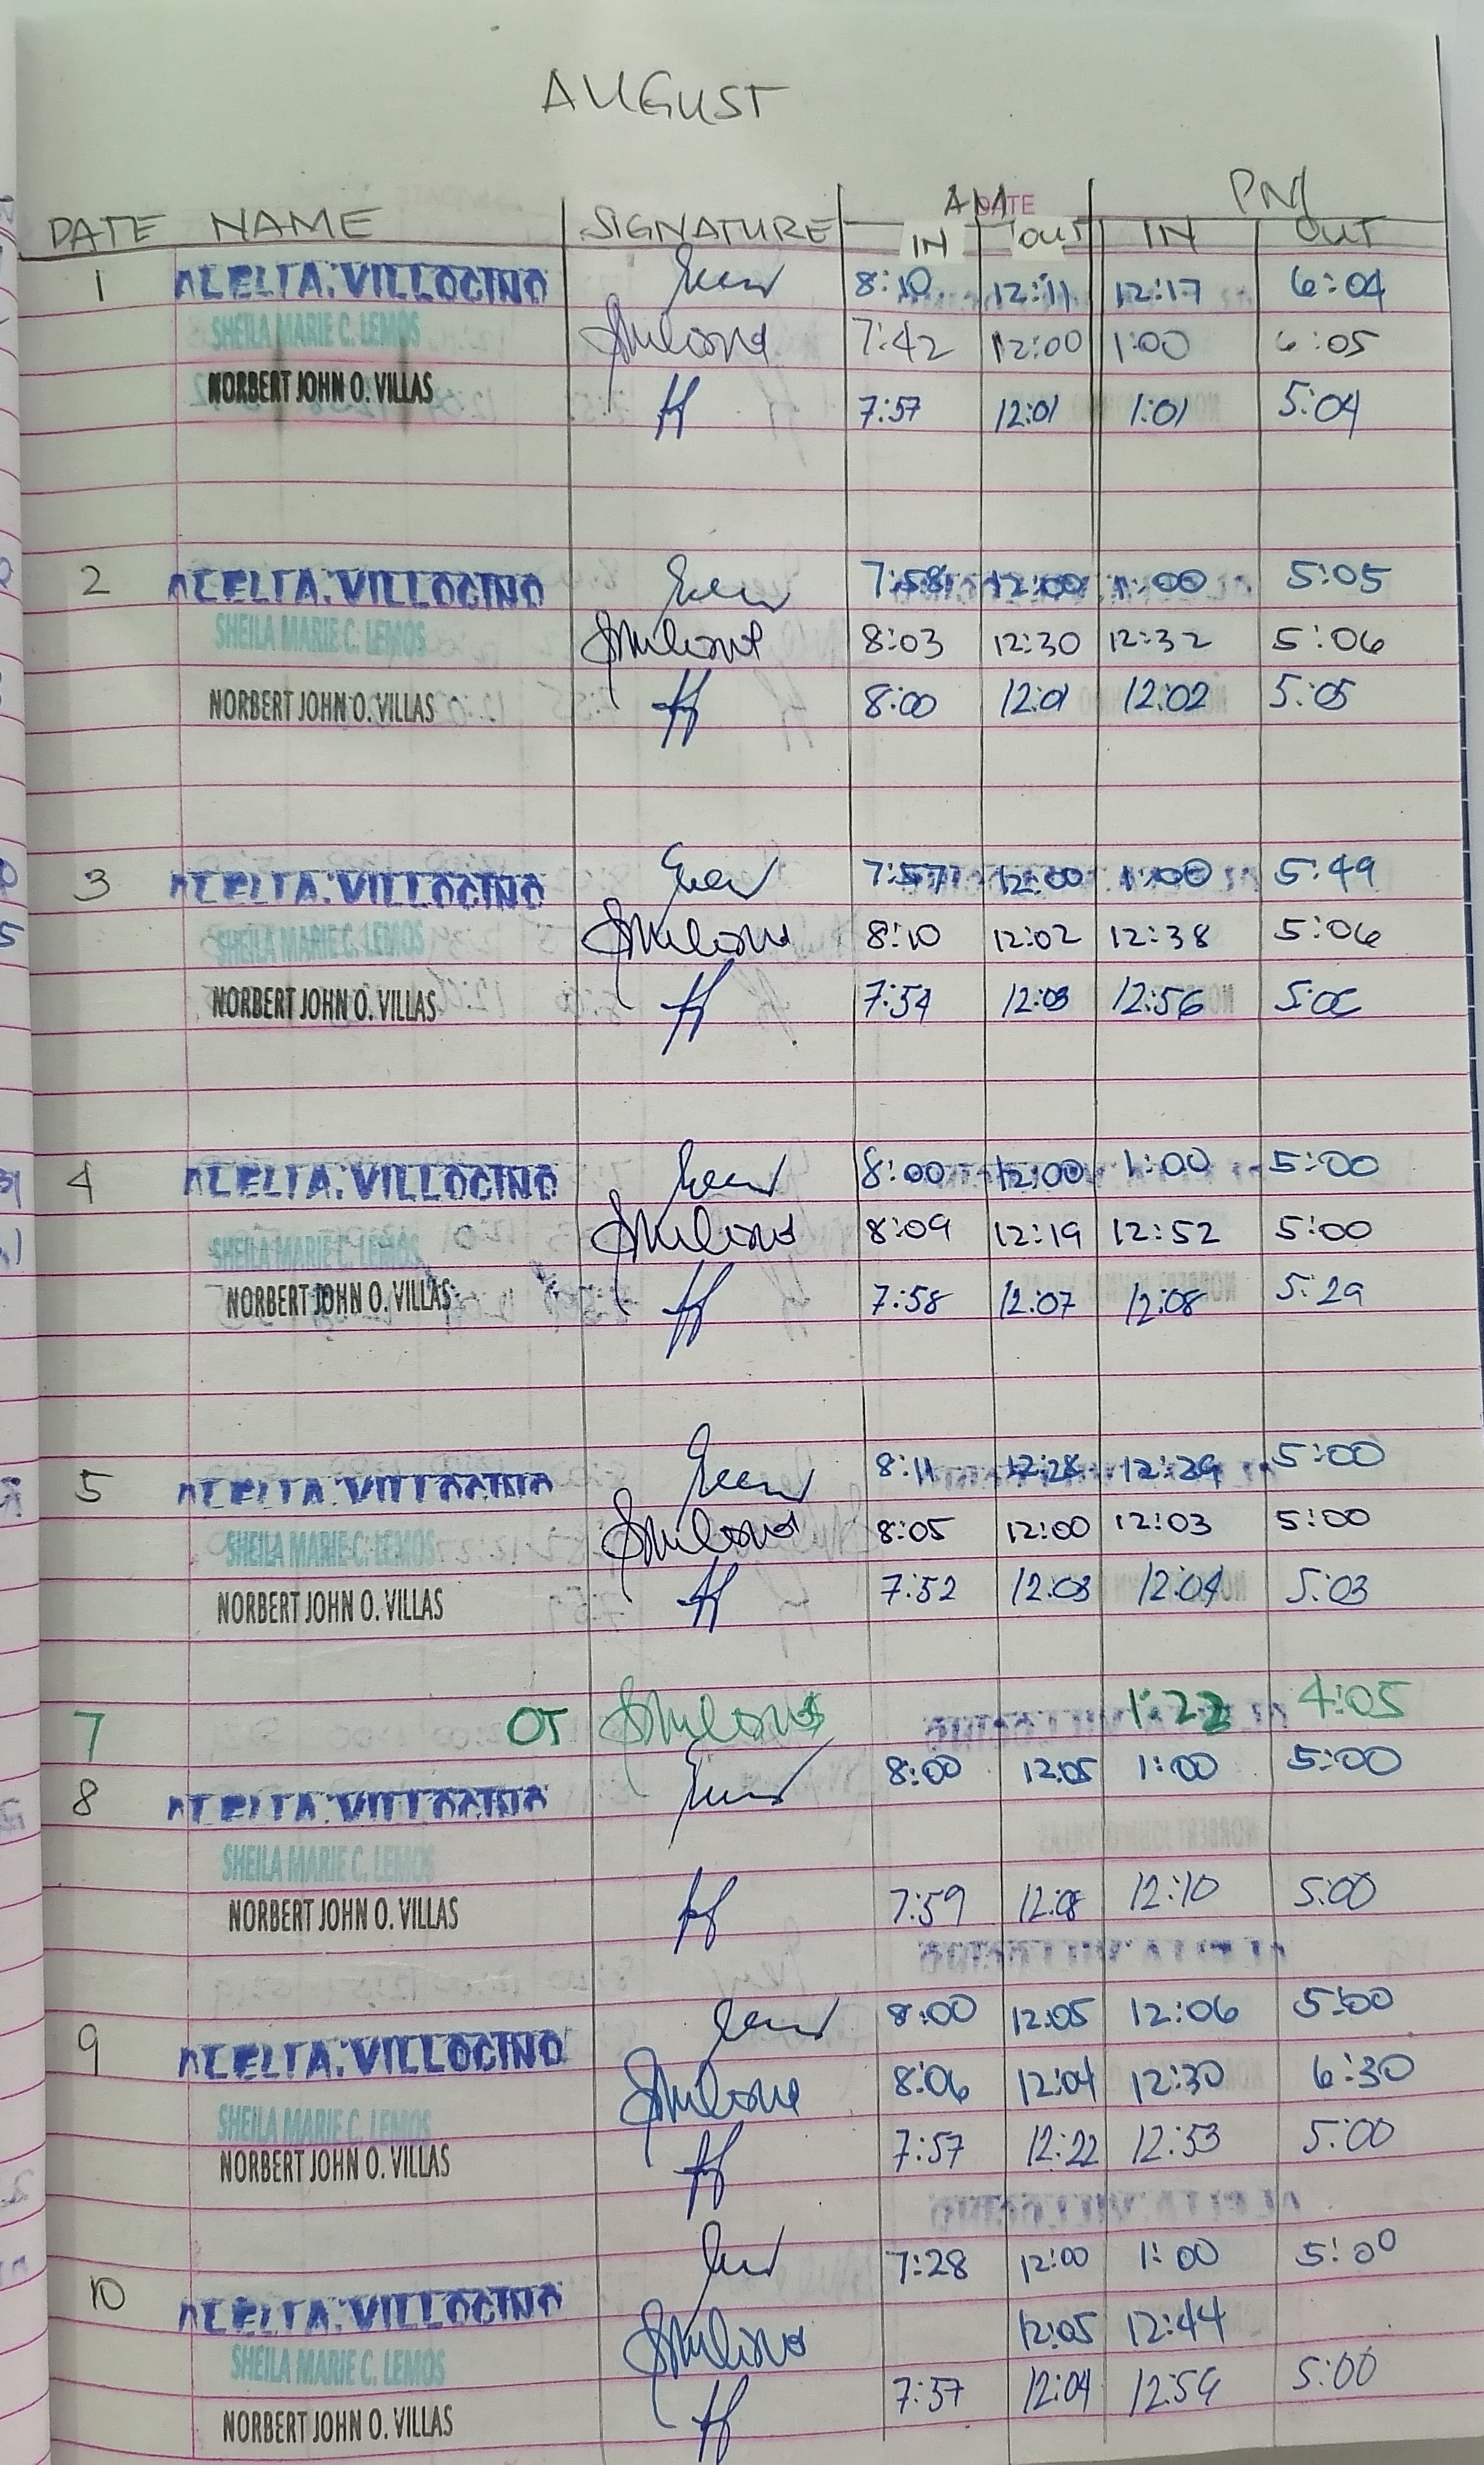 AUGUST
AM PM
DATE NAME SIGNATURE IN OUT IN OUT
1 ALELI A. VILLOCINO 8:10 12:11 12:17 6:04
SHEILA MARIE C. LEMOS 7:42 12:00 1:00 6:05
NORBERT JOHN O. VILLAS 7:57 12:01 1:01 5:04
2 ALELI A. VILLOCINO 7:58 12:00 1:00 5:05
SHEILA MARIE C. LEMOS 8:03 12:30 12:32 5:06
NORBERT JOHN O. VILLAS 8:00 12:01 12:02 5:05
3 ALELI A. VILLOCINO 7:57 12:00 1:00 5:49
SHEILA MARIE C. LEMOS 8:10 12:02 12:38 5:06
NORBERT JOHN O. VILLAS 7:54 12:03 12:56
4 ALELI A. VILLOCINO 8:00 12:00 1:00 5:00
SHEILA MARIE C. LEMOS 8:09 12:19 12:52 5:00
NORBERT JOHN O. VILLAS 7:58 12:07 12:08 5:29
5 ALELI A. VILLOCINO 8:11 12:28 12:29 5:00
SHEILA MARIE C. LEMOS 8:05 12:00 12:03 5:00
NORBERT JOHN O. VILLAS 7:52 12:03 12:04 5:03
7 OT 1:22 4:05
8 ALELI A. VILLOCINO 8:00 12:05 1:00 5:00
SHEILA MARIE C. LEMOS
NORBERT JOHN O. VILLAS 7:59 12:08 12:10 5:00
9 ALELI A. VILLOCINO 8:00 12:05 12:06 5:00
SHEILA MARIE C. LEMOS 8:06 12:04 12:30 6:30
NORBERT JOHN O. VILLAS 7:57 12:22 12:53 5:00
10 ALELI A. VILLOCINO 7:28 12:00 1:00 5:00
SHEILA MARIE C. LEMOS 12:05 12:44
NORBERT JOHN O. VILLAS 7:57 12:04 12:59 5:00